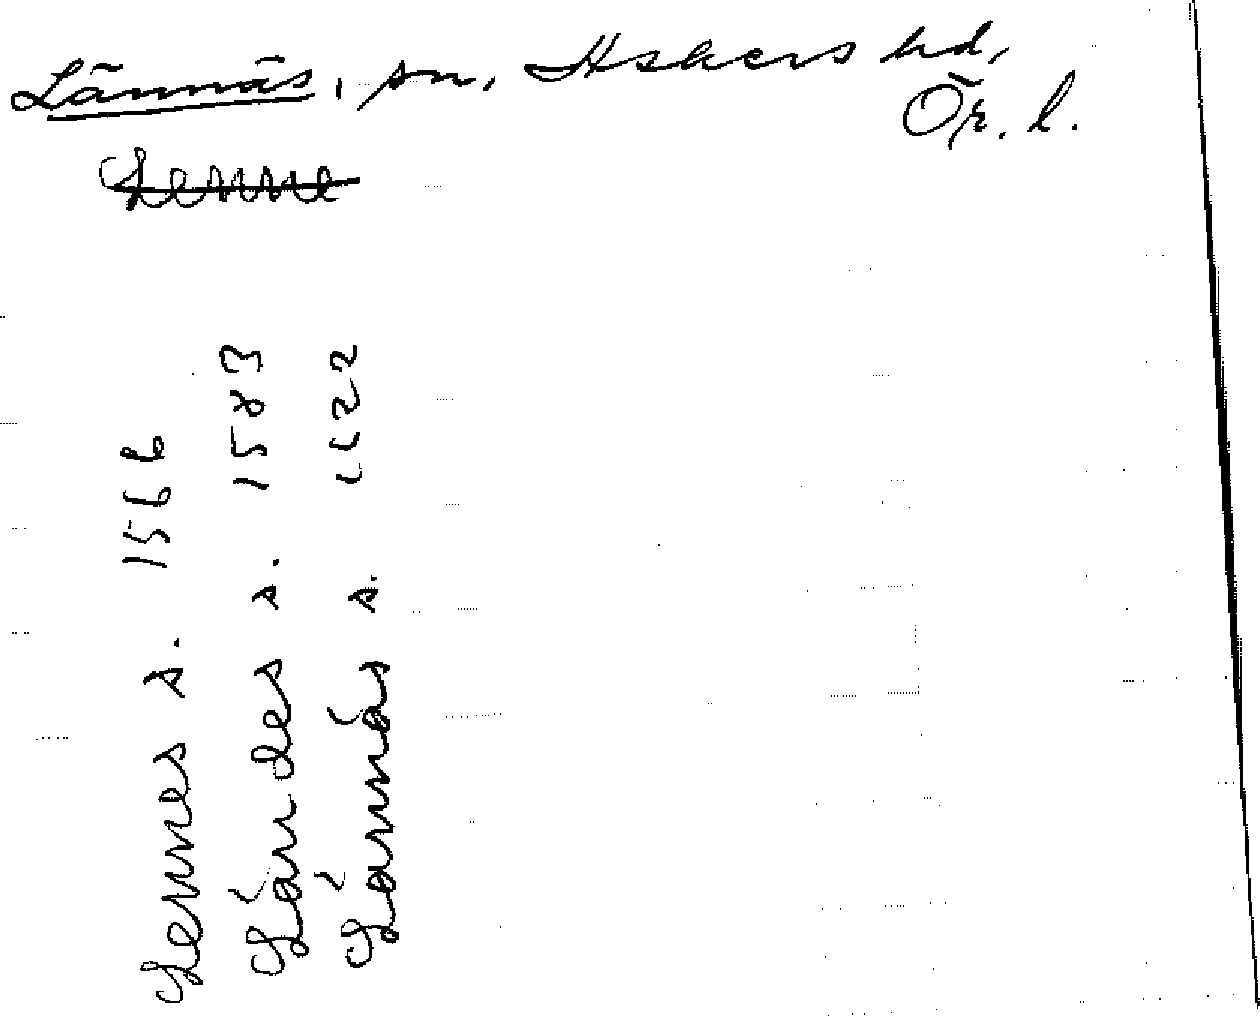 Lännäs, sn, Askers hd,
Ör. l.
Lenne
Lennes s. 1566
Ländes s. 1583
Lännäs s. 1622